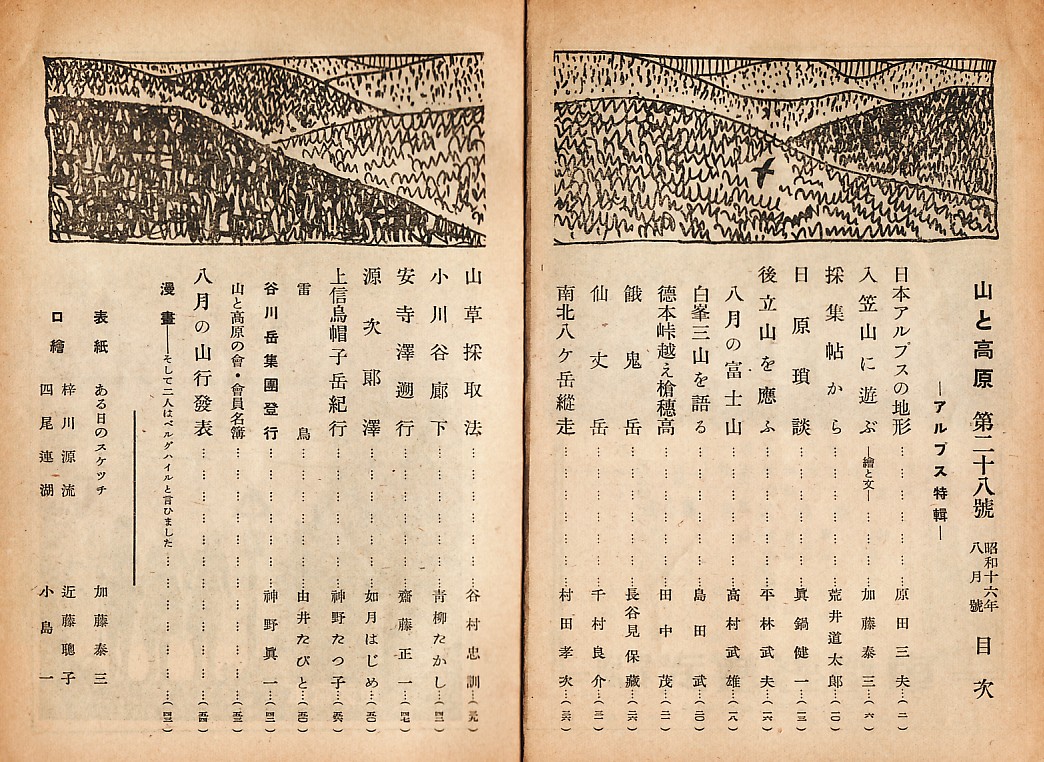 山と高原 第二十八號 昭和十六年八月號 目次
―アルプス特輯―
日本アルプスの地形……原田三夫…(二)
入笠山に遊ぶ―繪と文―……加藤泰三…(六)
採集帖から……荒井道太郎…(一〇)
日原瑣談……眞鍋健一…(一三)
後立山を應ふ……平林武夫…(一六)
八月の富士山……高村武雄…(一八)
白峯三山を語る……島田武…(二〇)
德本峠越え槍穗高……田中茂…(二二)
餓鬼岳……長谷見保藏…(二六)
仙丈岳……千村良介…(三二)
南北八ケ岳縱走……村田孝次…(三六)
山草採取法……谷村忠訓
小川谷廊下……青柳たかし
安寺澤遡行……齋藤正一
源次郎澤……如月はじめ
上信烏帽子岳紀行……神野たつ子
雷鳥……由井たびと
谷川岳集團登行……神野眞一
山と高原の會・會員名簿……
八月の山行發表……
漫畫―そして二人はベルグハイルと言ひました……
表紙 ある日のスケッチ 加藤泰三
口繪 梓川源流 近藤聰子
四尾連湖 小島一